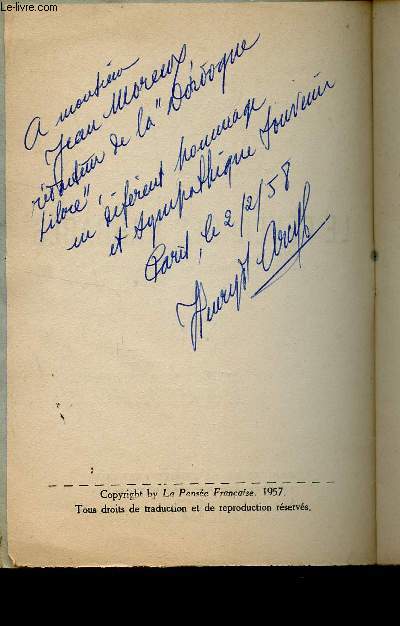 Le-livre.com
A monsieur
Jean Moreux
rédacteur de la "Dordogne
Libre",
en déférent hommage
et sympathique souvenir
Paris, le 2/2/58
Copyright by La Pensée Française. 1957.
Tous droits de traduction et de reproduction réservés.